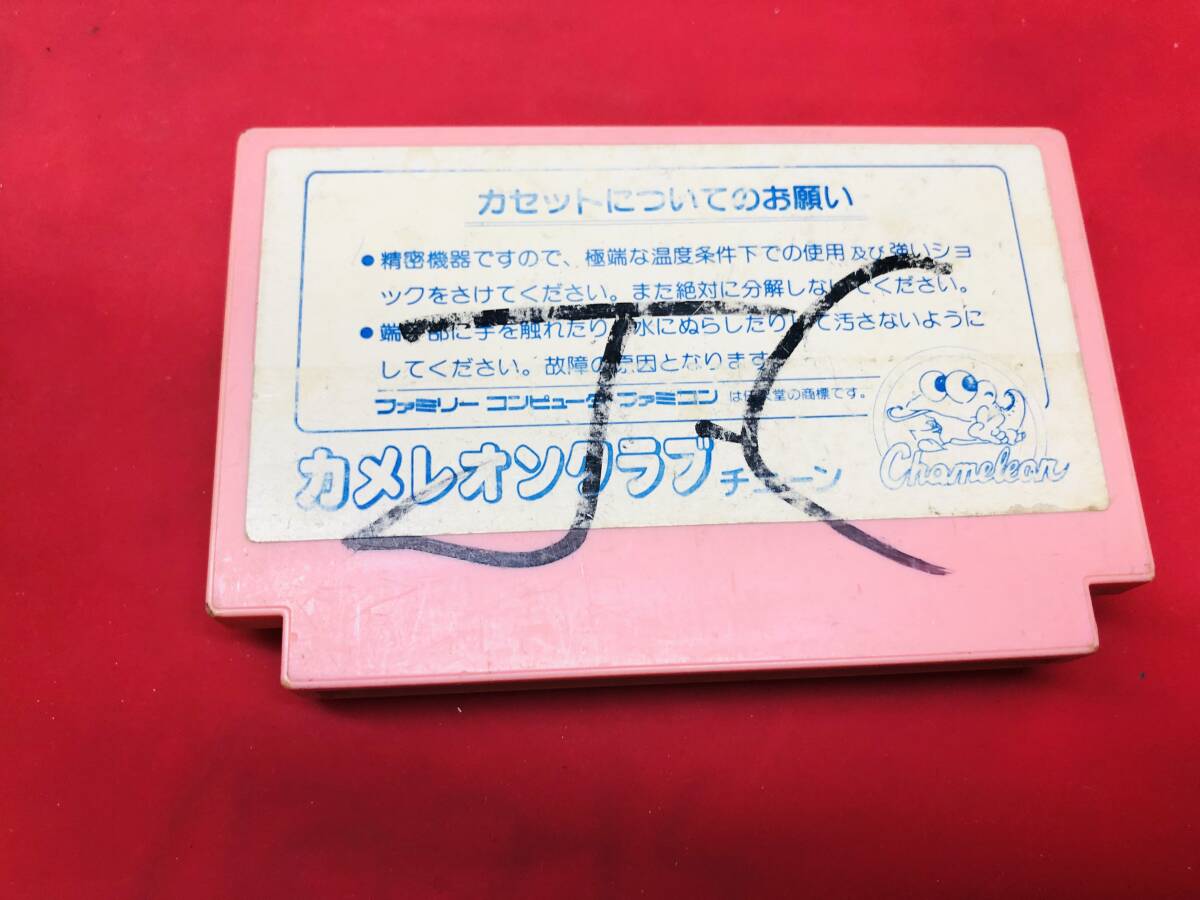 カセットについてのお願い
●精密機器ですので、極端な温度条件下での使用及び強いショ
ックをさけてください。また絶対に分解しないでください。
●端子部に手を触れたり、水にぬらしたりして汚さないように
してください。故障の原因となります。
ファミリーコンピュータ ファミコン は任天堂の商標です。
カメレオンクラブチェーン
Chameleon